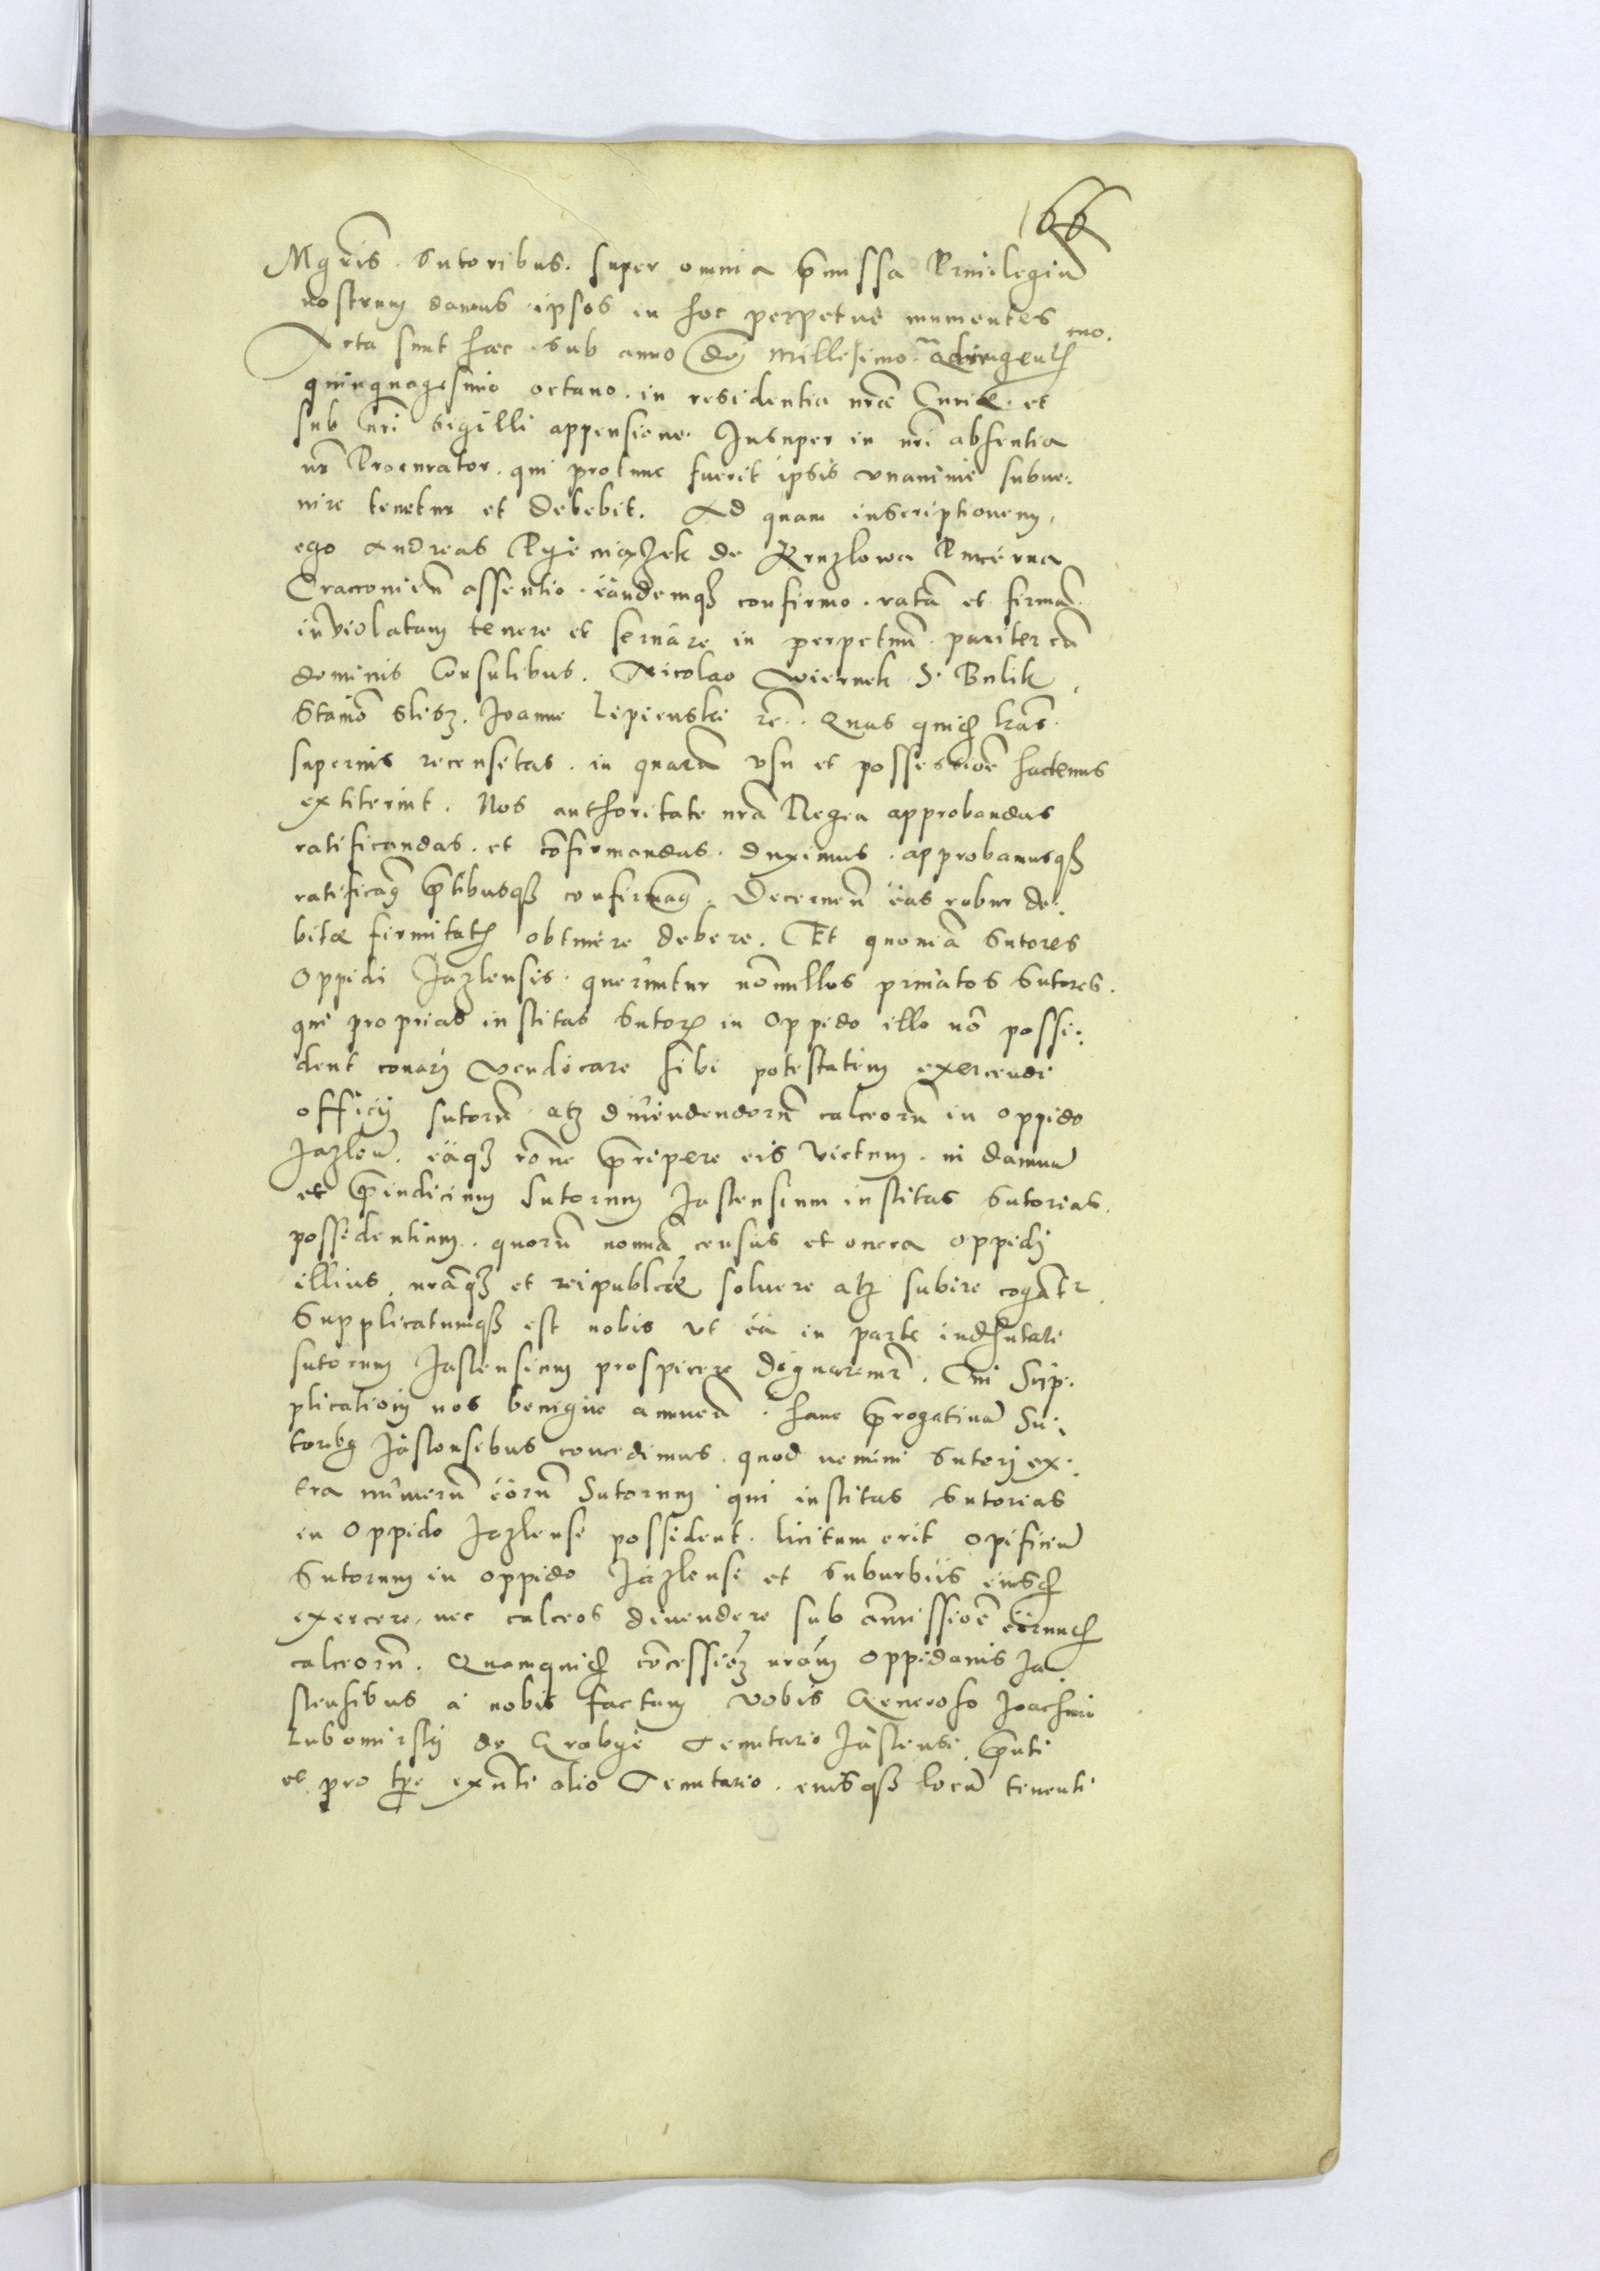 166
Mgr̃is . Sutoribus . super omnia p̃missa Priuilegiũ
nostrum damus ipsos in hoc perpetue mumentes
Acta sunt hæc sub anno dñj Millesimo quadringentes mo.
quinquagesimo octauo . in residentia nræ Curiæ . et
sub nri sigilli appensione . Insuper in nri absentia
nr̃ Procurator . qui protunc fuerit ipsis vnanimie subue:
nire tenetur et debebit . Ad quam inscriptionem ,
ego Andreas Pyeniąžek de Kruzlowa Pincerna
Cracouieñ assentio . eandemqȝ confirmo . ratã et firmã .
inviolatam tenere et seruare in perpetuũ . pariter cũ
dominis Consulibus . Nicolao Wiernek S . Bulik
Stanõ Slisz . Joanne Lipienski rẽ . . Quas quidẽ lr̃as .
superius recensitas . in quarũ vsu et possessiõe hactenus
extiterint . Nos authoritate nr̃a Regia approbandas
ratificandas . et cõfirmandas . duximus . approbamusqȝ
ratificam̃ p̃ntibusqȝ confirmam̃ . Decerneñ eas robur de:
bitæ firmitatis obtinere debere . Et quoniã Sutores
Oppidi Jazlensis . queruntur nõnullos priuatos Sutores .
qui proprias institas Sutor̃ in Oppido illo nõ possi:
dent conarj vendicare sibi potestatem exercendi
officij sutorũ atqȝ diuendendorũ calceorũ in oppido
Jazleñ . eaqȝ rõne p̃ripere eis victum . in damnũ
et p̃iudicium Sutorum Jaslensium institas Sutorias .
possidentium . quorũ nomĩa census et onera oppidj
illius nrãqȝ et reipublcæ soluere atqȝ subire cogãtr
Supplicatumqȝ est nobis vt ea in parte indẽnitati
sutorum Jaslensium prospicere dignaremr̃ . Cui Sup:
plicationi nos benigne annueñ . hanc p̃rogatiuã Su:
toribȝ Jaslensibus concedimus . quod nemini Sutorj ex:
tra numerũ eorũ Sutorum qui institas Sutorias
in Oppido Jazlensi possident . licitum erit opificiũ
Sutorum in oppido Jazlensi et Suburbiis eiusdẽ
exercere , nec calceos diuendere sub amissiõe eorundẽ
calceorũ . Quamquidẽ cõcessiõem nrãm oppidanis Ja
slensibus a nobis factam vobis Generoso Joachimo
Lubomirskj de Grabye Tenutario Jaslensi p̃nti
et pro tp̃re exñti alio Tenutario . eiusqȝ locũ tenenti